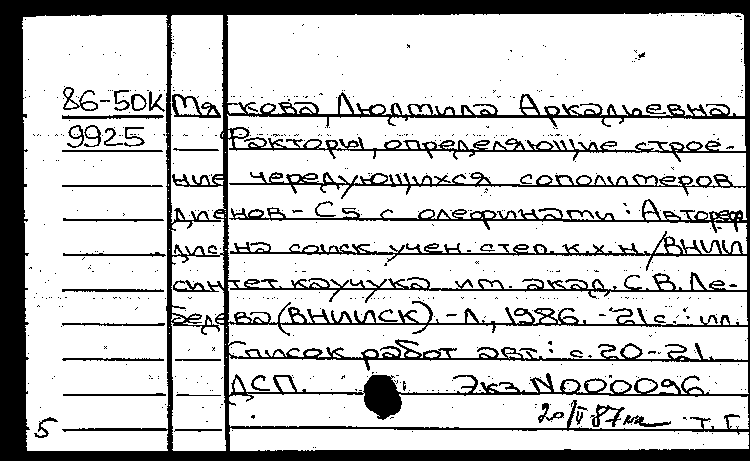 86-50К Мягкова, Людмила Аркадьевна.
9925 Факторы, определяющие строе-
ние чередующихся сополимеров
диенов-С5 с олефинами: Автореф
дис на соиск учен. степ. к.х.н. / ВНИИ
синтет. каучука им. акад. С.В. Ле-
бедева (ВНИИСК). - Л., 1986. - 21 с.: ил.
Список работ авт.: с. 20-21.
ДСП. Экз. N000096.
20/II 87
5 Т. Г.